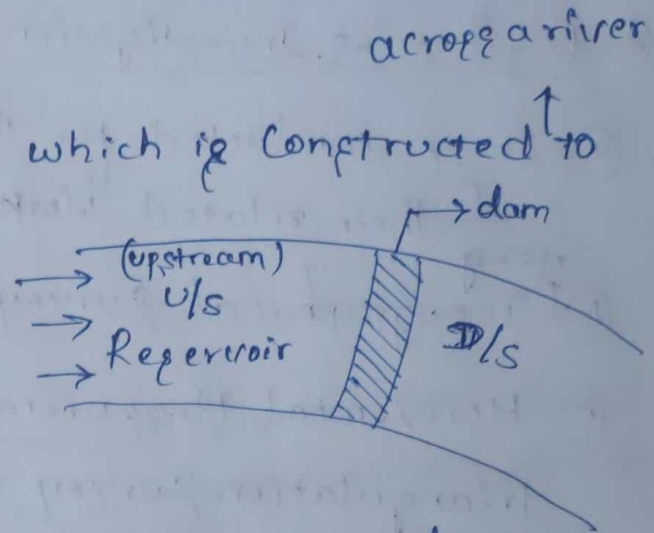 across a river
which is Constructed to
dam
(upstream)
U/S
Reservoir
D/S